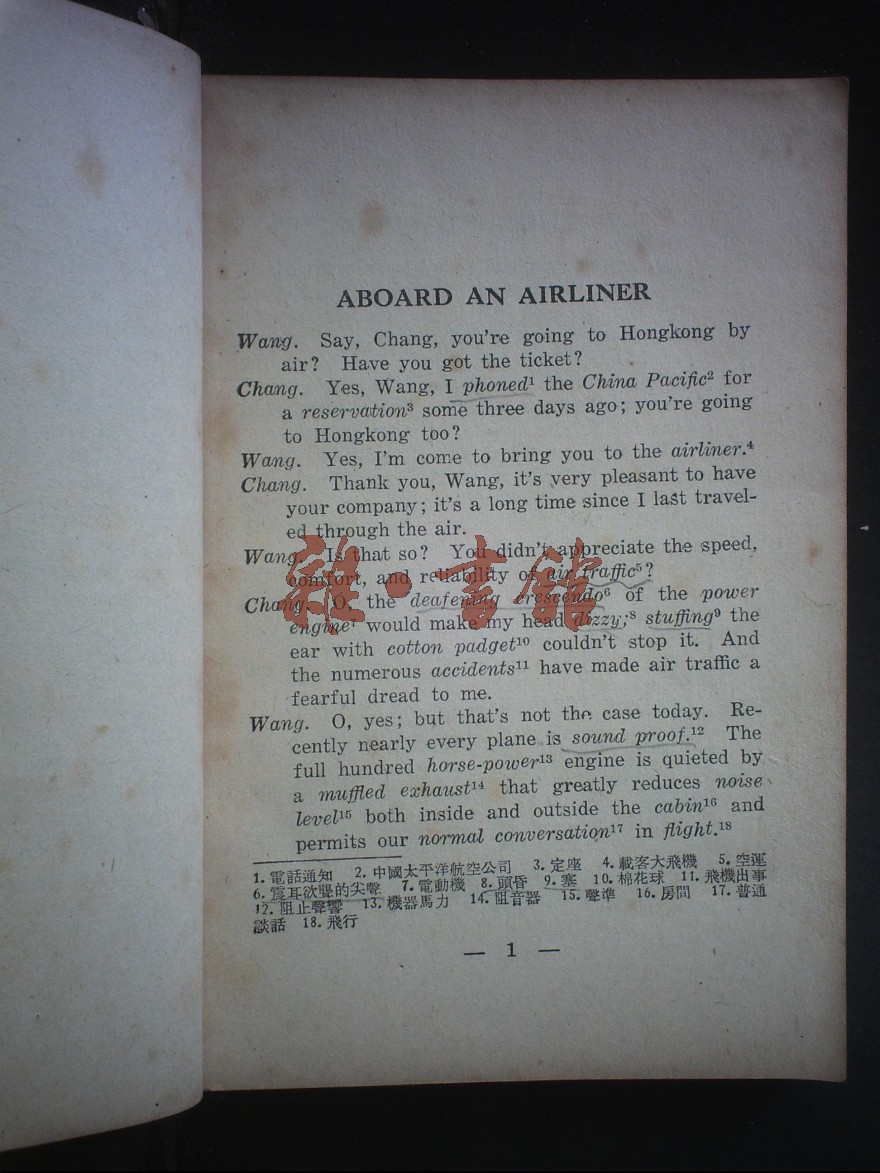 ABOARD AN AIRLINER
Wang. Say, Chang, you're going to Hongkong by
air? Have you got the ticket?
Chang. Yes, Wang, I phoned¹ the China Pacific² for
a reservation³ some three days ago; you're going
to Hongkong too?
Wang. Yes, I'm come to bring you to the airliner.⁴
Chang. Thank you, Wang, it's very pleasant to have
your company; it's a long time since I last travel-
ed through the air.
Wang. Is that so? You didn't appreciate the speed,
comfort, and reliability of air traffic⁵?
Chang. O, the deafening crescendo⁶ of the power
engine⁷ would make my head dizzy;⁸ stuffing⁹ the
ear with cotton padget¹⁰ couldn't stop it. And
the numerous accidents¹¹ have made air traffic a
fearful dread to me.
Wang. O, yes; but that's not the case today. Re-
cently nearly every plane is sound proof.¹² The
full hundred horse-power¹³ engine is quieted by
a muffled exhaust¹⁴ that greatly reduces noise
level¹⁵ both inside and outside the cabin¹⁶ and
permits our normal conversation¹⁷ in flight.¹⁸
1. 電話通知 2. 中國太平洋航空公司 3. 定座 4. 載客大飛機 5. 空運
6. 震耳欲聾的尖聲 7. 電動機 8. 頭昏 9. 塞 10. 棉花球 11. 飛機出事
12. 阻止聲響 13. 機器馬力 14. 阻音器 15. 聲準 16. 房間 17. 普通
談話 18. 飛行
— 1 —
雜·書館